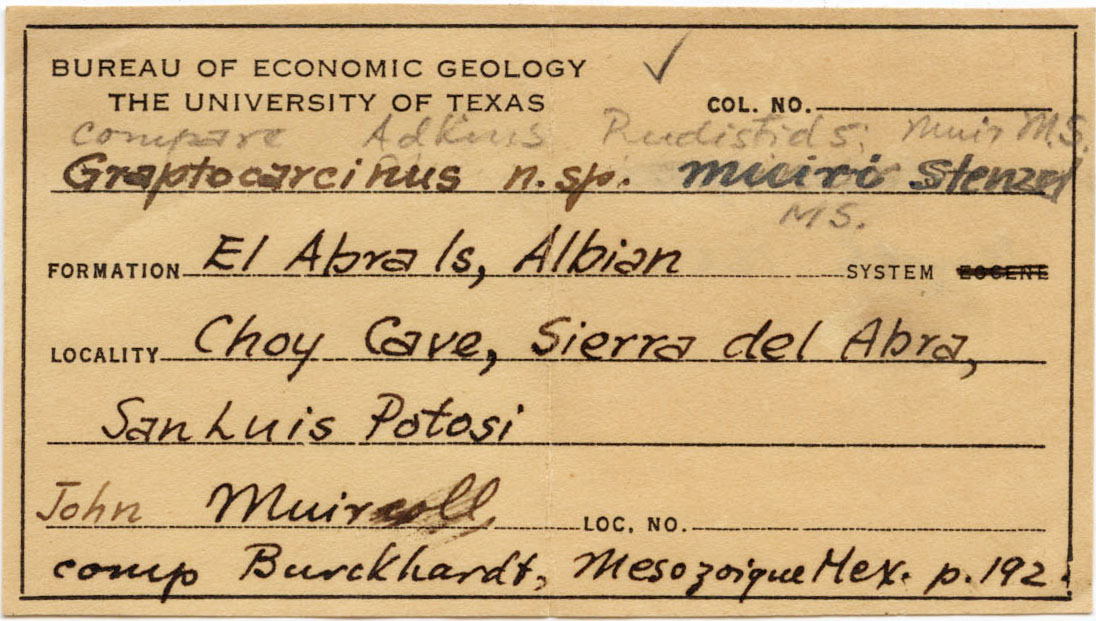 BUREAU OF ECONOMIC GEOLOGY ✓
THE UNIVERSITY OF TEXAS COL. NO.
compare Adkins Rudistids; Muir M.S.
Graptocarcinus n.sp. muiri Stenzel
MS.
FORMATION El Abra ls, Albian SYSTEM EOCENE
LOCALITY Choy Cave, Sierra del Abra,
San Luis Potosi
John Muir coll. LOC. NO.
comp Burckhardt, Mesozoique Mex. p. 192.